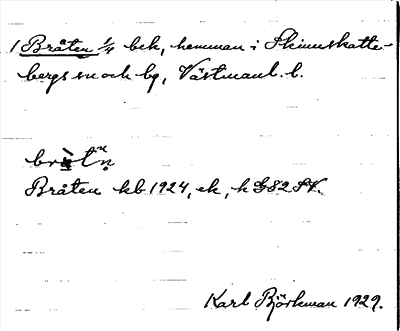 1 Bråten 1/4 bek, hemman i Skinnskatte-
bergs sn och bg, Västmanl. l.
Bråten kb 1924, ek, h G82 SV.
Karl Björkman 1929.